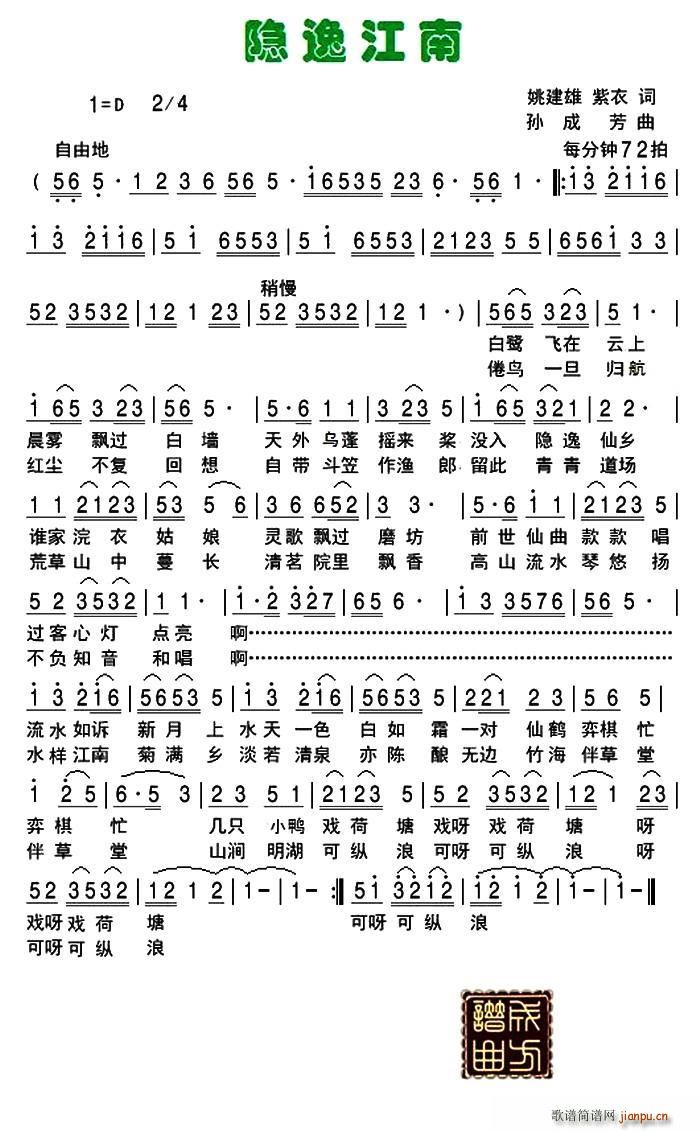 隐逸江南
1=D 2/4
姚建雄 紫衣 词
孙成芳曲
自由地
每分钟72拍
( 56 5· 12 36 56 5· 16535 23 6· 56 1· ‖: 13 2116
13 2116 | 51 6553 | 51 6553 | 2123 55 | 6561 33 |
稍慢
52 3532 | 12 1 23 | 52 3532 | 12 1·) | 565 323 | 5 1· |
白鹭 飞在 云上
倦鸟 一旦 归航
165 3 23 | 56 5· | 5·6 11 | 323 5· | 165 321 | 2 2· |
晨雾 飘过 白墙 天外乌蓬 摇来 桨没入 隐逸 仙乡
红尘 不复 回想 自带斗笠 作渔 郎,留此 青青 道场
11 2123 | 53 56 | 36 652 | 3 3· | 5·6 11 | 2123 5 |
谁家 浣衣 姑娘 灵歌飘过 磨坊 前世仙曲 款款唱
荒草山中 蔓长 清茗院里 飘香 高山流水 琴悠扬
52 3532 | 1 1· | 1·2 327 | 65 6· | 13 3576 | 5·
过客心灯 点亮 啊
不负知音 和唱 啊
13 216 | 565 3 23 | 13 216 | 565 3 23 | 2221 2 3 | 56 5 |
流水如诉 新月上水天一色 白如霜一对 仙鹤弈棋忙
水样江南 菊满乡淡若清泉 亦陈酿无边 竹海伴草堂
1 25 | 6·5 3 | 23 51 | 2123 5 | 52 3532 | 12 23 |
弈棋 忙 几只 小鸭 戏荷塘 戏呀戏荷 塘 呀
伴草 堂 山涧 明湖 可纵浪 可呀可纵 浪 呀
52 3532 | 12 12 | 1- | 1- :‖ 51 3212 | 12 12 | 1- | 1- ‖
戏呀戏荷 塘 可呀可纵 浪
可呀可纵 浪
譜曲成方
歌谱简谱网
jianpu.cn